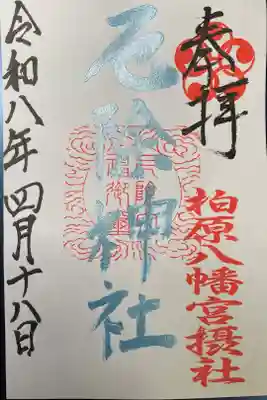 奉拝
柏原八幡宮摂社
厄除神社
令和八年四月十八日